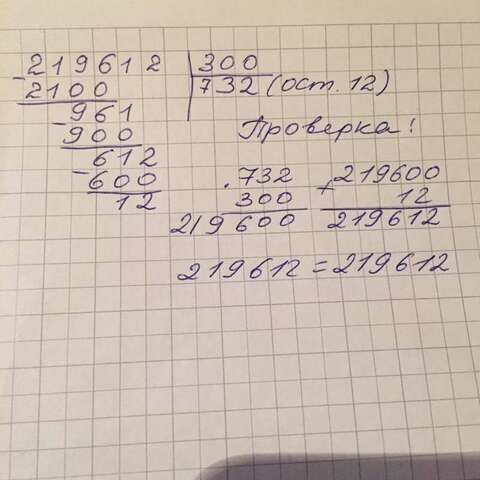 219612 | 300
- 2100 | 732 (ост. 12)
- 961
900
- 612
600
12
Проверка!
. 732
300
219600
+ 219600
12
219612
219612 = 219612